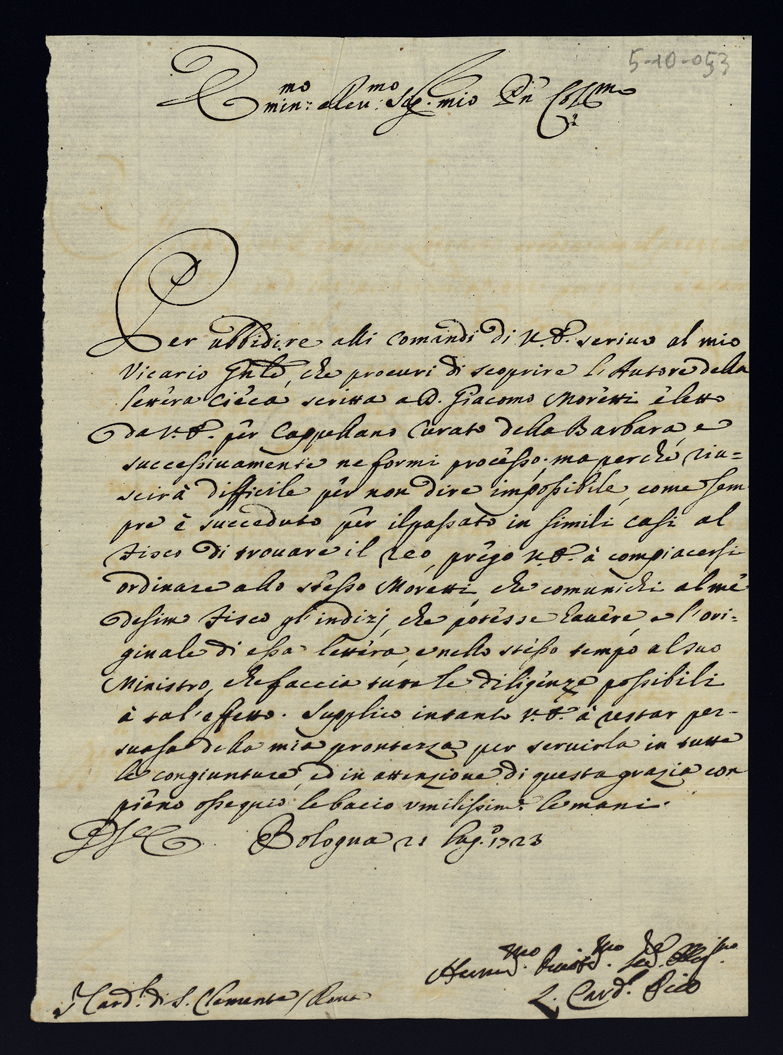 5-10-053
Em.mo e Rev.mo Sig. mio P.ron Col.mo
Per ubbidire alli comandi di V.E. scrivo al mio
Vicario Gnle, che procuri di scoprire l'Autore della
lettera cieca scritta a D. Giacomo Moretti eletto
da V.E. per Cappellano Curato della Barbara, e
successivamente ne formi processo; ma perche riu-
scirà difficile per non dire impossibile, come sem
pre è succeduto per il passato in simili casi al
fisco di trovare il reo, prego V.E. à compiacersi
ordinare allo stesso Moretti, che comunichi al me
desim fisco gl'indizj, che potesse havere, e l'ori-
ginale di essa lettera, e nello stesso tempo al suo
Ministro, che faccia tutte le diligenze possibili
à tal'effetto. Supplico intanto V.E. à restar per-
suasa della mia prontezza per servirla in tutte
le congiunture, ed in attenzione di questa grazia con
pieno ossequio le bacio umilissim.e le mani.
D.V.E. Bologna 21 Lug.o 1723
S.r Card.l di S. Clemente / Roma
L. Card.l Pico